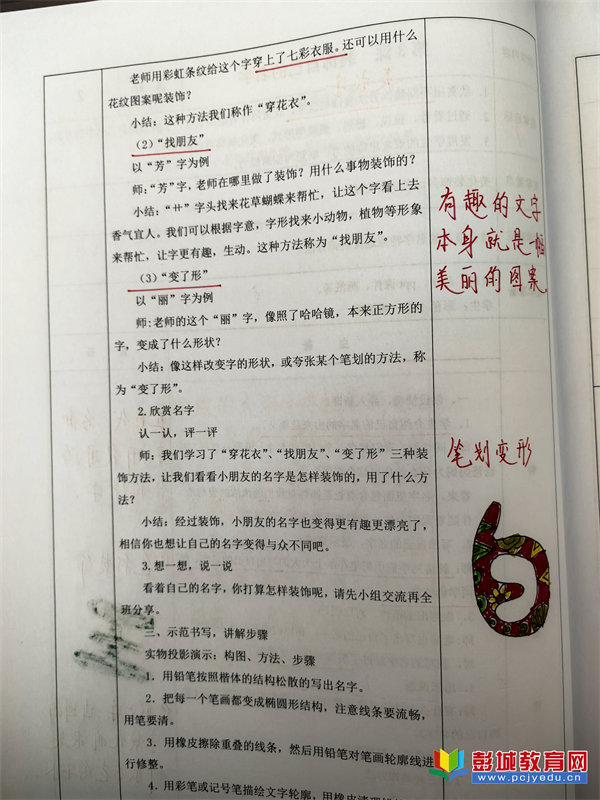 老师用彩虹条纹给这个字穿上了七彩衣服。还可以用什么
花纹图案呢装饰？
小结：这种方法我们称作“穿花衣”。
（2）“找朋友”
以“芳”字为例
师：“芳”字，老师在哪里做了装饰？用什么事物装饰的？
小结：“艹”字头找来花草蝴蝶来帮忙，让这个字看上去
香气宜人。我们可以根据字意，字形找来小动物，植物等形象
来帮忙，让字更有趣，生动。这种方法称为“找朋友”。
（3）“变了形”
以“丽”字为例
师:老师的这个“丽”字，像照了哈哈镜，本来正方形的
字，变成了什么形状？
小结：像这样改变字的形状，或夸张某个笔划的方法，称
为“变了形”。
2.欣赏名字
认一认，评一评
师：我们学习了“穿花衣”、“找朋友”、“变了形”三种装
饰方法，让我们看看小朋友的名字是怎样装饰的，用了什么方
法？
小结：经过装饰，小朋友的名字也变得更有趣更漂亮了，
相信你也想让自己的名字变得与众不同吧。
3.想一想，说一说
看着自己的名字，你打算怎样装饰呢，请先小组交流再全
班分享。
三、示范书写，讲解步骤
实物投影演示：构图、方法、步骤
1．用铅笔按照楷体的结构松散的写出名字。
2．把每一个笔画都变成椭圆形结构，注意线条要流畅，
用笔要清。
3．用橡皮擦除重叠的线条，然后用铅笔对笔画轮廓线进
行修整。
4．用彩笔或记号笔描绘文字轮廓，用橡皮清
有趣的文字
本身就是一幅
美丽的图案
笔划变形
彭城教育网
www.pcjyedu.cn